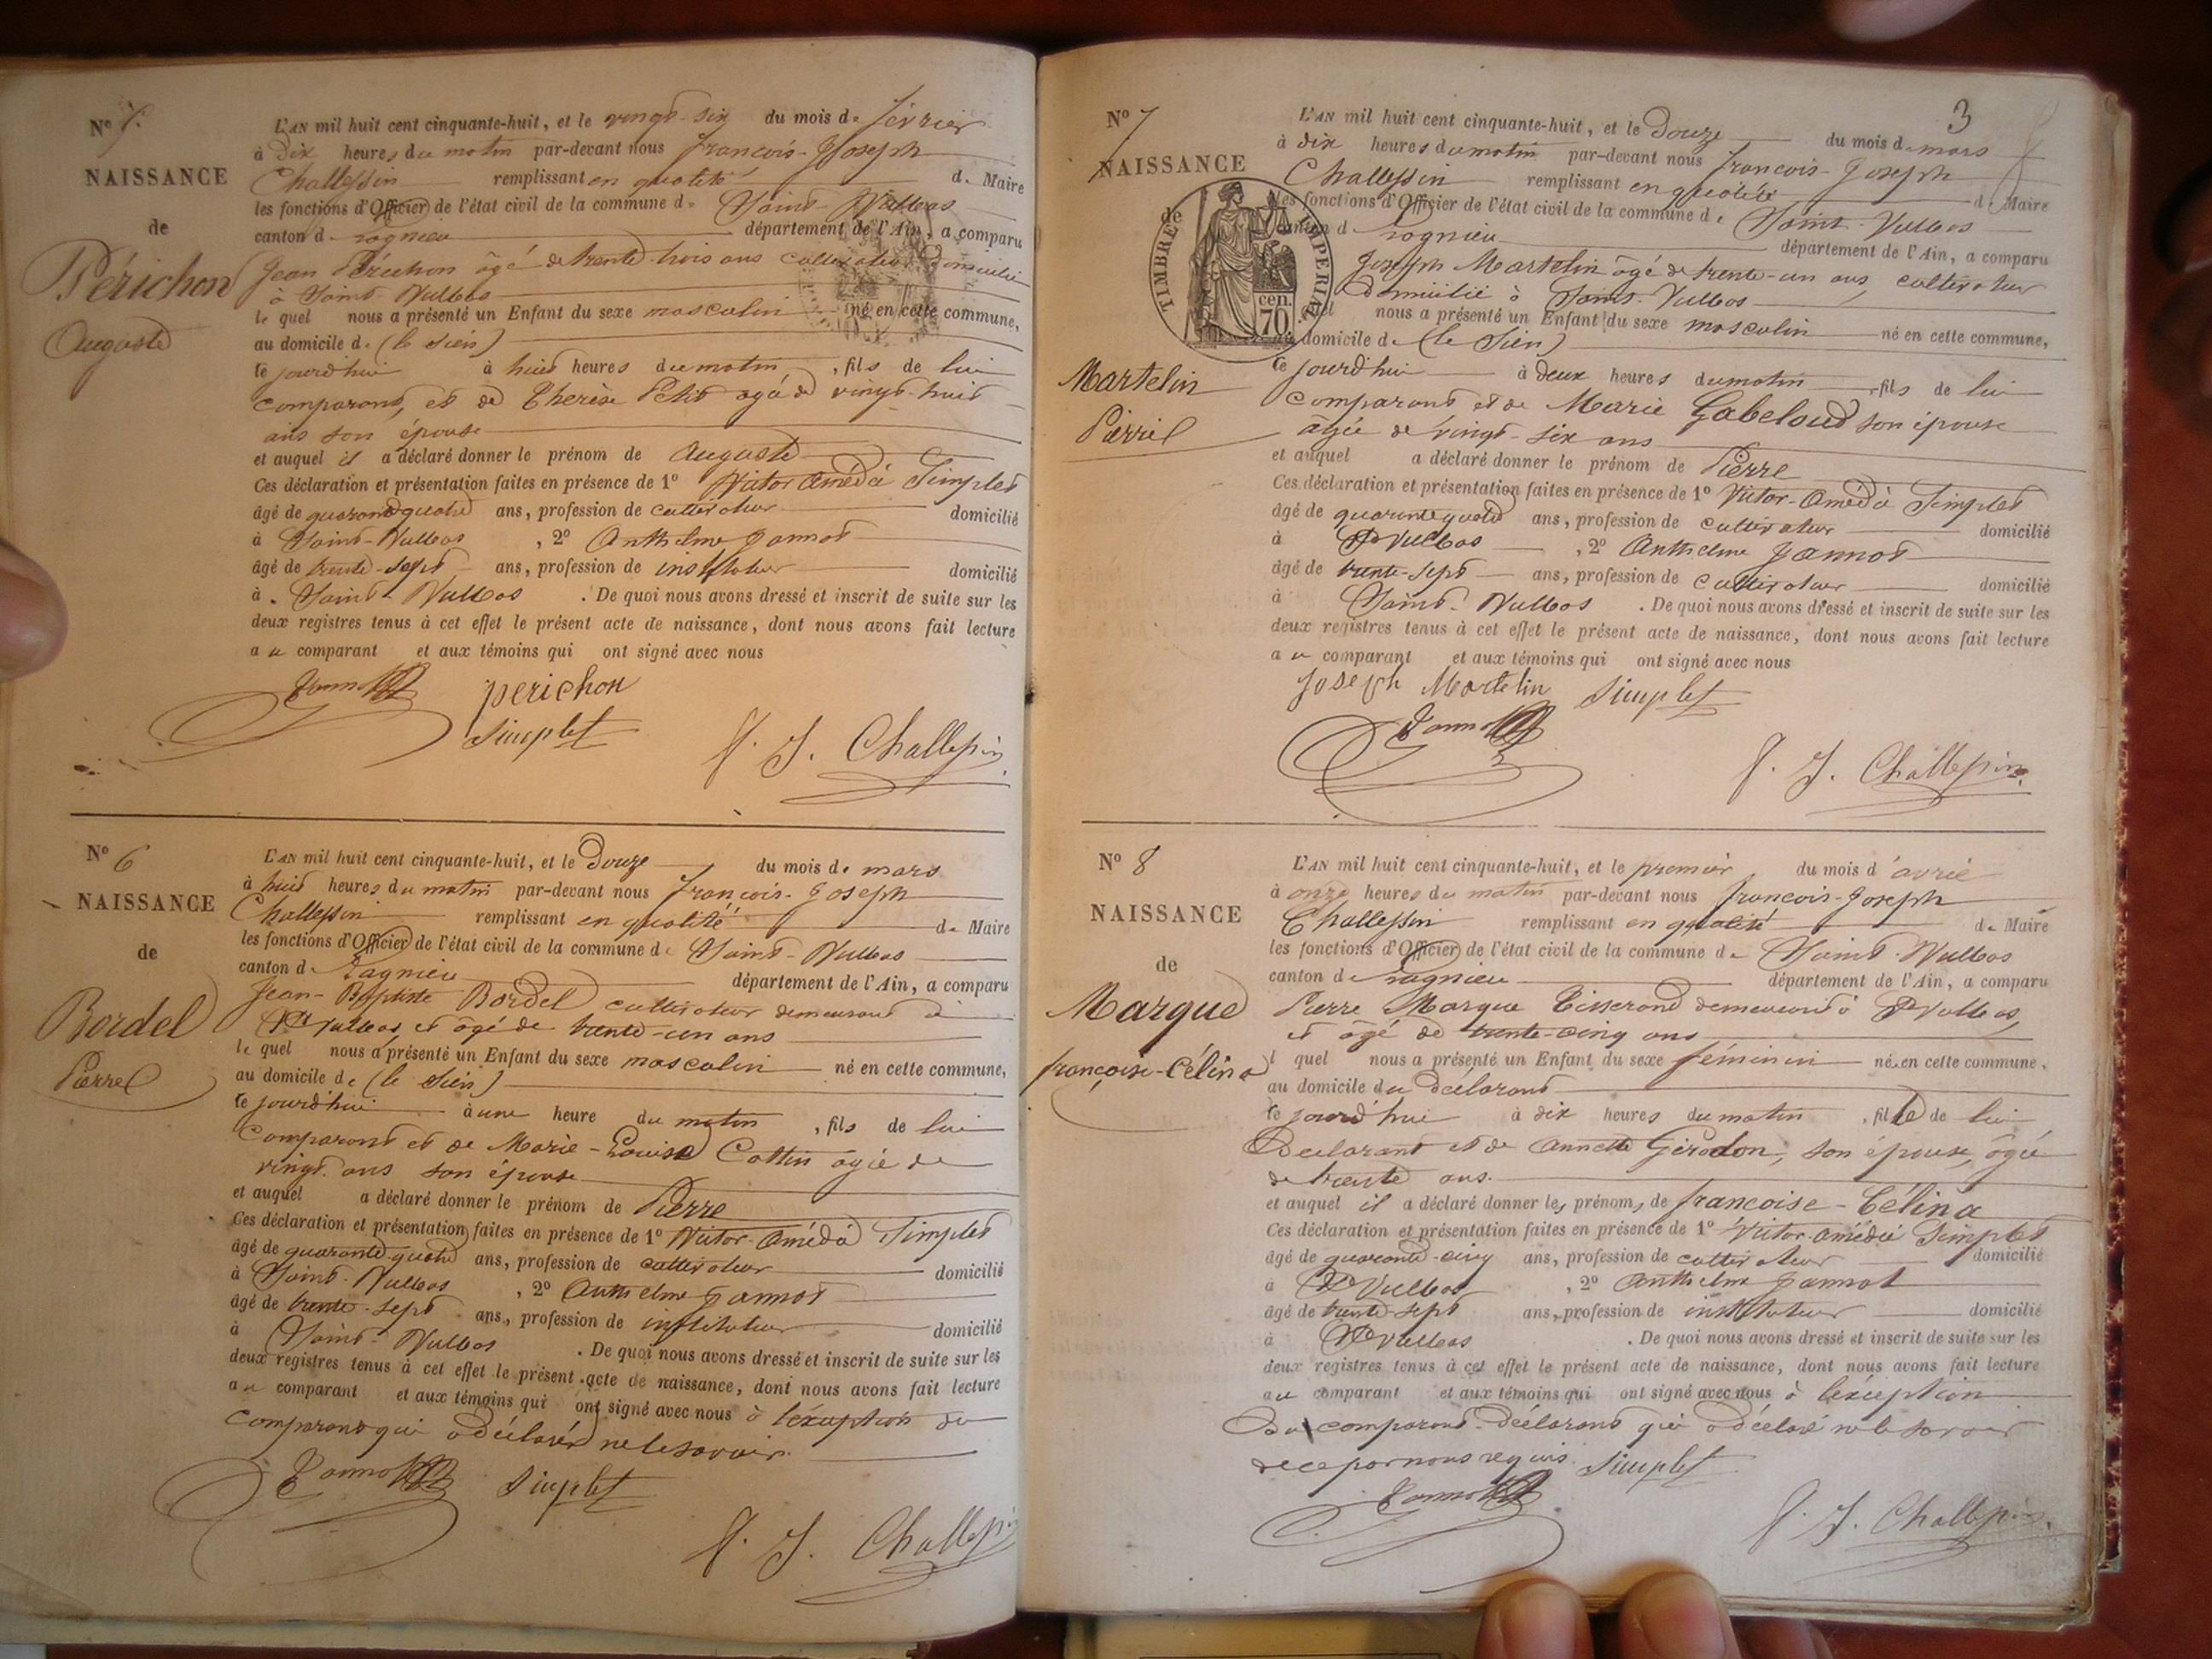 N° 5.
NAISSANCE
de
Périchon
Auguste
L'AN mil huit cent cinquante-huit, et le vingt-six du mois de février
à dix heures du matin par-devant nous françois-Joseph
Challessin remplissant en qualité de Maire
les fonctions d'Officier de l'état civil de la commune de Saint-Vulbas
canton d. Lagnieu département de l'Ain, a comparu
Jean Périchon âgé de trente-trois ans cultivateur domicilié
à Saint-Vulbas
le quel nous a présenté un Enfant du sexe masculin né en cette commune,
au domicile d. (le Sien)
ce jourd'hui à huit heures du matin, fils de lui
comparant, et de Therèse Petit agé de vingt-huit
ans son épouse
et auquel il a déclaré donner le prénom de Auguste
Ces déclaration et présentation faites en présence de 1° Victor Amédé Simplet
âgé de quarante quatre ans, profession de cultivateur domicilié
à Saint-Vulbas, 2° Anthelme Jannot
âgé de trente-sept ans, profession de instituteur domicilié
à. Saint-Vulbas. De quoi nous avons dressé et inscrit de suite sur les
deux registres tenus à cet effet le présent acte de naissance, dont nous avons fait lecture
au comparant et aux témoins qui ont signé avec nous
Jannot perichon
Simplet
f. J. Challessin
N° 6
NAISSANCE
de
Bordel
Pierre
L'AN mil huit cent cinquante-huit, et le Douze du mois de mars
à huit heures du matin par-devant nous françois-Joseph
Challessin remplissant en qualité de Maire
les fonctions d'Officier de l'état civil de la commune de Saint-Vulbas
canton d. Lagnieu département de l'Ain, a comparu
Jean-Baptiste Bordel cultivateur demeurant à
St Vulbas, et âgé de trente-un ans
le quel nous a présenté un Enfant du sexe masculin né en cette commune,
au domicile de (le Sien)
ce jourd'hui à une heure du matin, fils de lui
Comparant et de Marie-Louise Cottin âgée de
vingt ans son épouse
et auquel a déclaré donner le prénom de Pierre
Ces déclaration et présentation faites en présence de 1° Victor-Amédé Simplet
âgé de quarante-quatre ans, profession de cultivateur domicilié
à Saint-Vulbas, 2° Anthelme Jannot
âgé de trente-sept ans, profession de instituteur domicilié
à Saint-Vulbas. De quoi nous avons dressé et inscrit de suite sur les
deux registres tenus à cet effet le présent acte de naissance, dont nous avons fait lecture
au comparant et aux témoins qui ont signé avec nous à l'exception du
comparant qui a déclaré ne le savoir.
Jannot Simplet
f. J. Challessin
3
N° 7
NAISSANCE
de
TIMBRE IMPERIAL
cen.
70.
Martelin
Pierre
L'AN mil huit cent cinquante-huit, et le Douze du mois de mars
à dix heures du matin par-devant nous françois-Joseph
Challessin remplissant en qualité de Maire
les fonctions d'Officier de l'état civil de la commune de Saint-Vulbas
canton d. Lagnieu département de l'Ain, a comparu
Joseph Martelin âgé de trente-un ans, cultivateur
domicilié à Saint-Vulbas
quel nous a présenté un Enfant du sexe masculin né en cette commune,
au domicile de (le Sien)
ce jourd'hui à deux heures du matin fils de lui
Comparant et de Marie Gabeloud son épouse
âgée de vingt-six ans
et auquel a déclaré donner le prénom de Pierre
Ces déclaration et présentation faites en présence de 1° Victor-Amédé Simplet
âgé de quarante quatre ans, profession de cultivateur domicilié
à St Vulbas, 2° Anthelme Jannot
âgé de trente-sept ans, profession de cultivateur domicilié
à Saint-Vulbas. De quoi nous avons dressé et inscrit de suite sur les
deux registres tenus à cet effet le présent acte de naissance, dont nous avons fait lecture
au comparant et aux témoins qui ont signé avec nous
Joseph Martelin Simplet
Jannot
f. J. Challessin
N° 8
NAISSANCE
de
Marque
françoise-Célina
L'AN mil huit cent cinquante-huit, et le premier du mois d'avril
à onze heures du matin par-devant nous françois-Joseph
Challessin remplissant en qualité de Maire
les fonctions d'Officier de l'état civil de la commune de Saint-Vulbas
canton de Lagnieu département de l'Ain, a comparu
Pierre Marque Tisserand demeurant à St Vulbas,
et âgé de trente-cinq ans
l quel nous a présenté un Enfant du sexe féminin née en cette commune,
au domicile du déclarant
ce jourd'hui à dix heures du matin, fille de lui
Déclarant et de Annette Girodon, son épouse, âgée
de trente ans.
et auquel il a déclaré donner les prénoms de françoise-Célina
Ces déclaration et présentation faites en présence de 1° Victor-Amédée Simplet
âgé de quarante-cinq ans, profession de cultivateur domicilié
à St Vulbas, 2° Anthelme Jannot
âgé de trente-sept ans, profession de instituteur domicilié
à St Vulbas. De quoi nous avons dressé et inscrit de suite sur les
deux registres tenus à cet effet le présent acte de naissance, dont nous avons fait lecture
au comparant et aux témoins qui ont signé avec nous à l'exception
Du comparant-Déclarant qui a déclaré ne le savoir
de ce par nous requis. Simplet
Jannot
f. J. Challessin